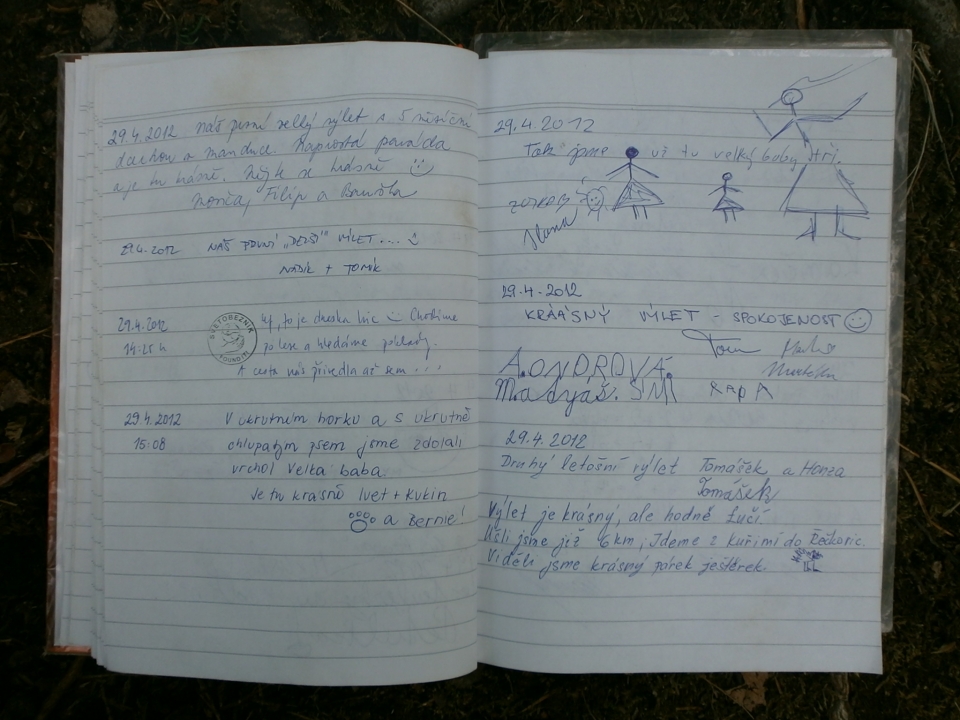 29.4.2012 Náš první velký výlet s 5 měsíční
a Manduce. Naprostá paráda
a je tu krásně.
Filip a
29.4.2012 NÁŠ PRVNÍ „DELŠÍ“ VÝLET....
NÁDIK + TOMÍK
29.4.2012
14:25 h
SVĚTOBĚŽNÍK
Uf, to je dneska hic Chodíme
po lese a hledáme poklady.
A cesta nás přivedla až sem...
29.4.2012
15:08
V ukrutném horku a s ukrutně
chlupatým psem jsme zdolali
vrchol Velká baba.
Je tu krásně Ivet + Kukin
a Bernie!
29.4.2012
Také jsme už tu velký baby tři.
Ilana
29.4.2012
KRÁÁSNÝ VÝLET - SPOKOJENOST
Tom
A.ONDROVÁ.
Matyáš.
29.4.2012
Druhý letošní výlet Tomášek a Honza
Tomášek
Výlet je krásný, ale hodně fučí
Ušli jsme již 6 km, Jdeme z Kuřimi do Řečkovic.
Viděli jsme krásný párek ještěrek.